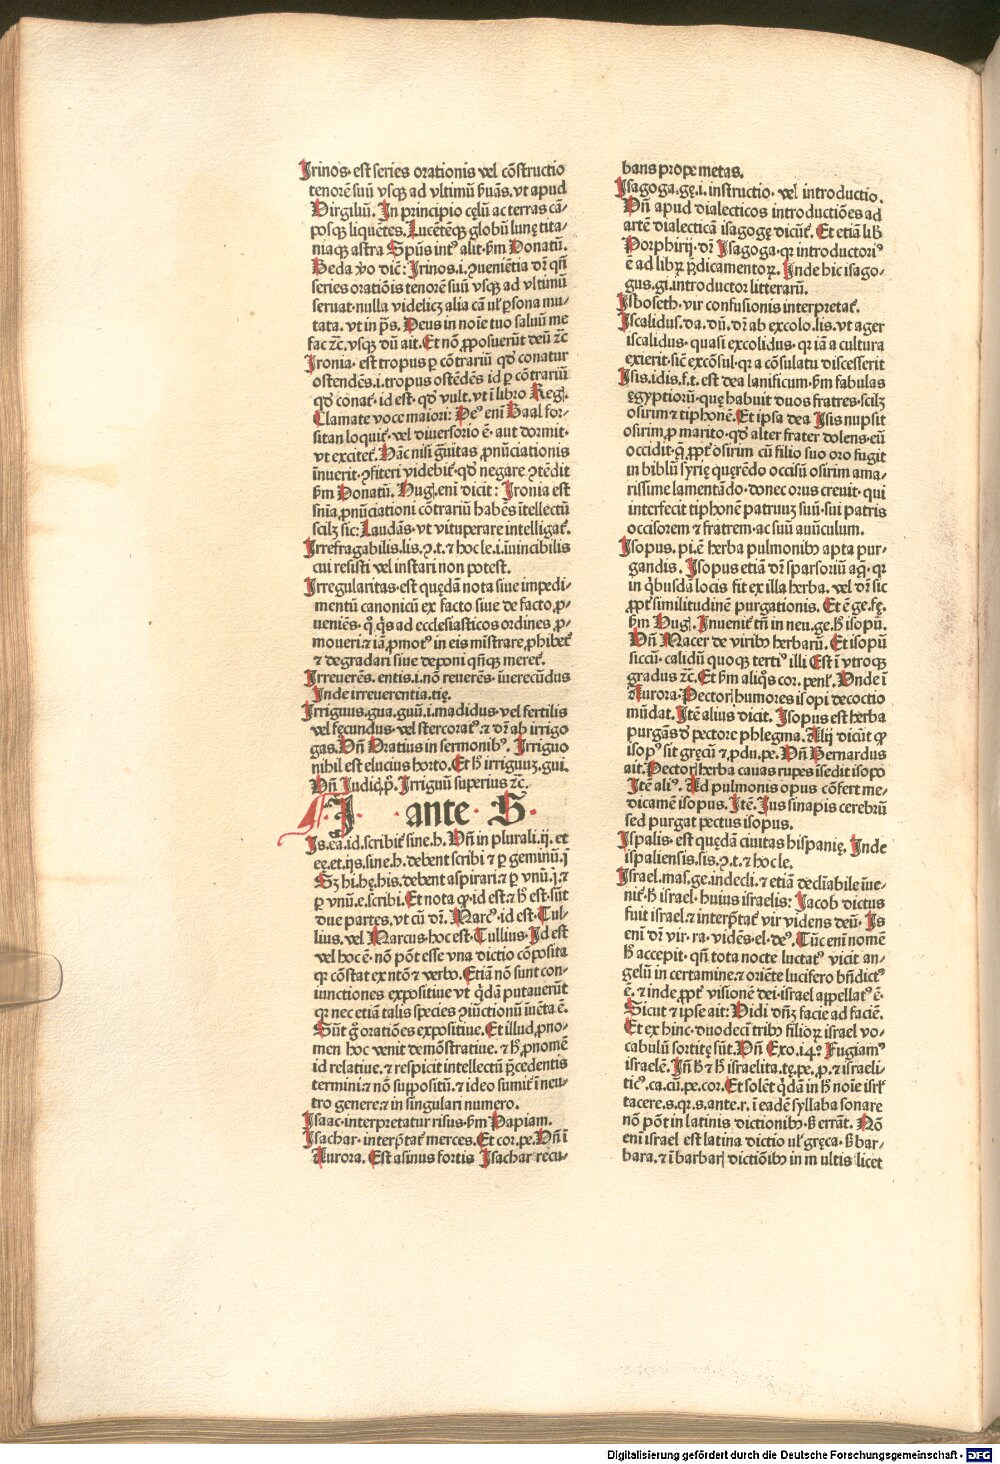 Irinos· est series orationis vel cōstructio
tenorē suū vsqꝫ ad vltimū ẜuās. vt apud
Virgiliū. In principio cęlū ac terras cā⸗
posqꝫ liquētes. Lucētēqꝫ globū lunę tita⸗
niaqꝫ astra Spūs intꝰ alit· ẜm Donatū.
Beda ꝟo dic̄: Irinos .i. ꝯueniētia dr̄ qn̄
series oratiōis tenorē suū vsqꝫ ad vltimū
seruat· nulla videlicꝫ alia cā ul' ꝑsona mu⸗
tata. vt in ps̄. Deus in noīe tuo saluū me
fac ⁊c̄. vsqꝫ dū ait. Et nō ꝓposuerūt deū ⁊c̄
Ironia· est tropus ꝑ cōtrariū qd̄ conatur
ostendēs .i. tropus ostēdēs id ꝑ cōtrariū
qd̄ conat᷑· id est· qd̄ vult. vt ī libro Reg̨.
Clamate voce maiori: Deꝰ enī Baal for⸗
sitan loquit᷑· vel diuersorio ē· aut dormit·
vt excitet᷑. Hāc nisi g̅uitas ꝓnūciationis
iuuerit· ꝯfiteri videbit᷑· qd̄ negare ꝯtēdit
ẜm Donatū. Hug̨. enī dicit: Ironia est
sn̄ia ꝓnūciationi cōtrariū habēs ītellectū
scilꝫ sic: Laudās· vt vituperare intelligat᷑.
Irrefragabilis. lis. ꝯ. t. ⁊ hoc le .i. īuincibilis
cui resisti vel instari non potest.
Irregularitas· est quędā nota siue impedi⸗
mentū canonicū ex facto siue de facto ꝓ⸗
ueniēs· q̄ q̇s ad ecclesiasticos ordines ꝓ⸗
moueri· ⁊ iā ꝓmotꝰ in eis mīstrare ꝓhibet᷑
⁊ degradari siue deponi qn̄qꝫ meret᷑.
Irreuerēs. entis .i. nō reuerēs. īuerecūdus
Inde irreuerentia. tię.
Irriguus. gua. guū .i. madidus· vel fertilis
vel fęcundus· vel stercoratꝰ. ⁊ dr̄ ab irrigo
gas. Vn̄ Oratius in sermonibꝰ. Irriguo
nihil est elucius horto. Et h̄ irriguuꝫ. gui.
Vn̄ Iudic̨. p̊. Irriguū superius ⁊c̄.
I· ·ante· S·
Is. ea. id. scribit᷑ sine .h. Vn̄ in plurali .ij. et
eę. et .ijs. sine .h. debent scribi ⁊ ꝑ geminū .i
Sꝫ hi. hę. his. debent aspirari. ⁊ ꝑ vnū .i. ⁊
ꝑ vnū .e. scribi. Et nota ꝙ· id est· ⁊ h̄ est· sūt
due partes. vt cū dr̄. Marcꝰ· id est· Tul⸗
lius. vel Marcus· hoc est· Tullius. Id est
vel hoc ē· nō pōt esse vna dictio cōposita
qꝛ cōstat ex nōīe ⁊ verbo. Etiā nō sunt con⸗
iunctiones expositiue vt q̇dā putauerūt
qꝛ nec etiā talis species ꝯiūctionū iuēta ē.
Sūt g̊ oratiōes expositiue. Et illud ꝓno⸗
men hoc venit demōstratiue. ⁊ h̄ ꝓnomē
id relatiue. ⁊ respicit intellectū p̄cedentis
termini· ⁊ nō suppositū. ⁊ ideo sumit᷑ ī neu⸗
tro genere· ⁊ in singulari numero.
Isaac· interpretatur risus· ẜm Papiam.
Isachar· interp̄tat᷑ merces. Et cor. pe. Vn̄ ī
Aurora. Est asinus fortis Isachar recu⸗
bans prope metas.
Isagoga. gę .i. instructio· vel introductio.
Vn̄ apud dialecticos introductiōes ad
artē dialecticā isagogę dicūt᷑. Et etiā lib̄
Porphirij· dr̄ Isagoga· qꝛ introductoriꝰ
ē ad libꝝ p̄dicamentoꝝ. Inde hic isago⸗
gus. gi. introductor litterarū.
Isboseth· vir confusionis interpretat᷑.
Iscalidus. da. dū. dr̄ ab excolo. lis. vt ager
iscalidus· quasi excolidus· qꝛ iā a cultura
exierit· sic̄ excōsul· qꝛ a cōsulatu discesserit
Isis. idis. f. t. est dea lanificum· ẜm fabulas
ęgyptiorū· quę habuit duos fratres· scilꝫ
osirim ⁊ tiphonē. Et ipsa dea Isis nupsit
osirim ꝓ marito· qd̄ alter frater dolens· eū
occidit· q̄ ꝓpt᷑ osirim cū filio suo oro fugit
in bibliū syrię quęrēdo occisū osirim ama⸗
rissime lamentādo· donec orus creuit· qui
interfecit tiphonē patruuꝫ suū· sui patris
occisorem ⁊ fratrem· ac suū auūculum.
Isopus. pi. ē herba pulmonibꝫ apta pur⸗
gandis. Isopus etiā dr̄ sparsoriū aq̄· qꝛ
in q̇busdā locis fit ex illa herba. vel dr̄ sic
ꝓpt᷑ similitudinē purgationis. Et ē ge. fę.
ẜm Hug̨. Inuenit᷑ tn̄ in neu. ge. h̄ isopū.
Vn̄ Macer de viribꝫ herbarū. Et isopū
siccū· calidū quoqꝫ tertiꝰ illi Est ī vtroqꝫ
gradus ⁊c̄. Et ẜm aliq̊s cor. penl᷑. Vnde ī
Aurora· Pectorꝭ humores isopi decoctio
mūdat. Itē alius dicit. Isopus est herba
purgās d̄ pectore phlegma. Alij dicūt ꝙ
isopꝰ sit gręcū ⁊ ꝓdu. pe. Vn̄ Bernardus
ait. Pectorꝭ herba cauas rupes īsedit isopo
Itē aliꝰ. Ad pulmonis opus cōfert me⸗
dicamē isopus. Itē. Ius sinapis cerebrū
sed purgat pectus isopus.
Ispalis· est quędā ciuitas hispanię. Inde
ispaliensis. sis. ꝯ. t. ⁊ hoc le.
Israel. mas. ge. indecli. ⁊ etiā decl̄iabile īue⸗
nit᷑· h̄ israel· huius israelis: Iacob dictus
fuit israel. ⁊ interp̄tat᷑ vir videns deū. Is
enī dr̄ vir· ra· vidēs· el· deꝰ. Tūc enī nomē
h̄ accepit· qn̄ tota nocte luctatꝰ vicit an⸗
gelū in certamine. ⁊ oriēte lucifero bn̄dictꝰ
ē. ⁊ inde ꝓpt᷑ visionē dei· israel appellatꝰ ē·
Sicut ⁊ ipse ait: Vidi dn̄ꝫ facie ad faciē.
Et ex hinc· duodecī tribꝫ filioꝝ israel vo⸗
cabulū sortitę sūt. Vn̄ Exo. i4? Fugiamꝰ
israelē. In̄ h̄ ⁊ h̄ israelita. tę. pe. ꝓ. ⁊ israeli⸗
ticꝰ. ca. cū. pe. cor. Et solēt q̇dā in h̄ noīe isrl̄
tacere .s. qꝛ .s. ante .r. ī eadē syllaba sonare
nō pōt in latinis dictionibꝫ· ẜ errāt. Nō
enī israel est latina dictio ul' gręca. ẜ bar⸗
bara. ⁊ ī barbarꝭ dictiōibꝫ in multis licet
Digitalisierung gefördert durch die Deutsche Forschungsgemeinschaft - DFG